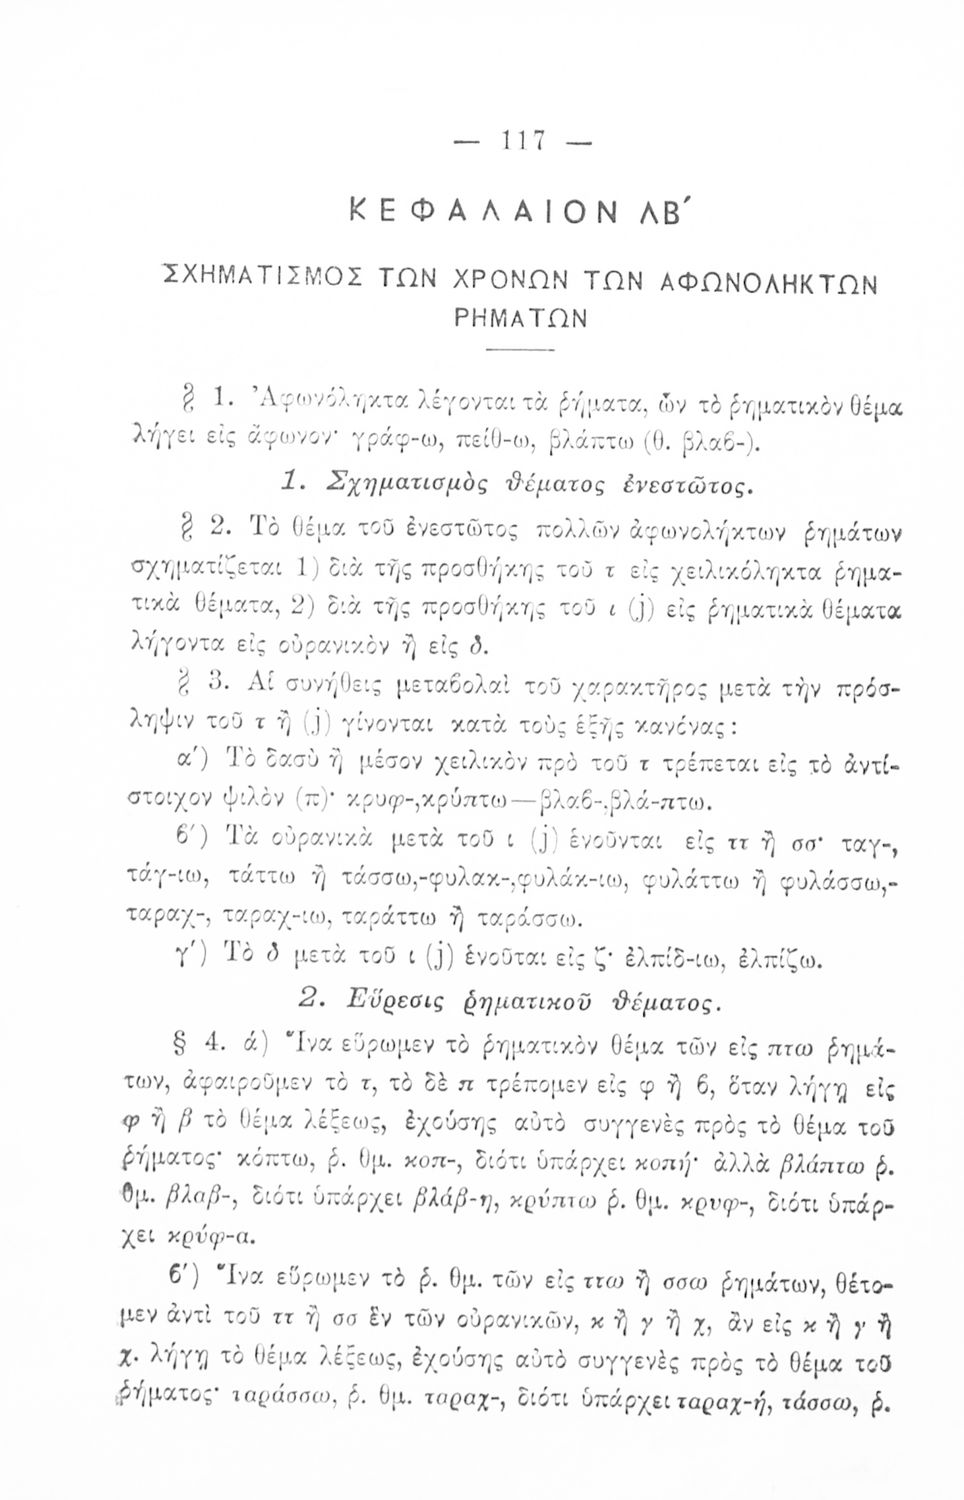 — 117 —
ΚΕΦΑΛΑΙΟΝ ΛΒ΄
ΣΧΗΜΑΤΙΣΜΟΣ ΤΩΝ ΧΡΟΝΩΝ ΤΩΝ ΑΦΩΝΟΛΗΚΤΩΝ
ΡΗΜΑΤΩΝ
§ 1. Ἀφωνόληκτα λέγονται τὰ ῥήματα, ὧν τὸ ῥηματικὸν θέμα
λήγει εἰς ἄφωνον· γράφ-ω, πείθ-ω, βλάπτω (θ. βλαϐ-).
1. Σχηματισμὸς θέματος ἐνεστῶτος.
§ 2. Τὸ θέμα τοῦ ἐνεστῶτος πολλῶν ἀφωνολήκτων ῥημάτων
σχηματίζεται 1) διὰ τῆς προσθήκης τοῦ τ εἰς χειλικόληκτα ῥημα-
τικὰ θέματα, 2) διὰ τῆς προσθήκης τοῦ ι (j) εἰς ῥηματικὰ θέματα
λήγοντα εἰς οὐρανικὸν ἢ εἰς δ.
§ 3. Αἱ συνήθεις μεταϐολαὶ τοῦ χαρακτῆρος μετὰ τὴν πρόσ-
ληψιν τοῦ τ ἢ (j) γίνονται κατὰ τοὺς ἑξῆς κανόνας:
α΄) Τὸ δασὺ ἢ μέσον χειλικὸν πρὸ τοῦ τ τρέπεται εἰς τὸ ἀντί-
στοιχον ψιλὸν (π)· κρυφ-,κρύπτω—βλαϐ-,βλά-πτω.
ϐ΄) Τὰ οὐρανικὰ μετὰ τοῦ ι (j) ἑνοῦνται εἰς ττ ἢ σσ· ταγ-,
τάγ-ιω, τάττω ἢ τάσσω,-φυλακ-,φυλάκ-ιω, φυλάττω ἢ φυλάσσω,-
ταραχ-, ταραχ-ιω, ταράττω ἢ ταράσσω.
γ΄) Τὸ δ μετὰ τοῦ ι (j) ἑνοῦται εἰς ζ· ἐλπίδ-ιω, ἐλπίζω.
2. Εὕρεσις ῥηματικοῦ θέματος.
§ 4. ά) Ἵνα εὕρωμεν τὸ ῥηματικὸν θέμα τῶν εἰς πτω ῥημά-
των, ἀφαιροῦμεν τὸ τ, τὸ δὲ π τρέπομεν εἰς φ ἢ ϐ, ὅταν λήγῃ εἰς
φ ἢ β τὸ θέμα λέξεως, ἐχούσης αὐτὸ συγγενὲς πρὸς τὸ θέμα τοῦ
ῥήματος· κόπτω, ῥ. θμ. κοπ-, διότι ὑπάρχει κοπή· ἀλλὰ βλάπτω ῥ.
θμ. βλαβ-, διότι ὑπάρχει βλάβ-η, κρύπτω ῥ. θμ. κρυφ-, διότι ὑπάρ-
χει κρύφ-α.
ϐ΄) Ἵνα εὕρωμεν τὸ ῥ. θμ. τῶν εἰς ττω ἢ σσω ῥημάτων, θέτο-
μεν ἀντὶ τοῦ ττ ἢ σσ ἓν τῶν οὐρανικῶν, κ ἢ γ ἢ χ, ἂν εἰς κ ἢ γ ἢ
χ. λήγῃ τὸ θέμα λέξεως, ἐχούσης αὐτὸ συγγενὲς πρὸς τὸ θέμα τοῦ
ῥήματος· ταράσσω, ῥ. θμ. ταραχ-, διότι ὑπάρχει ταραχ-ή, τάσσω, ῥ.